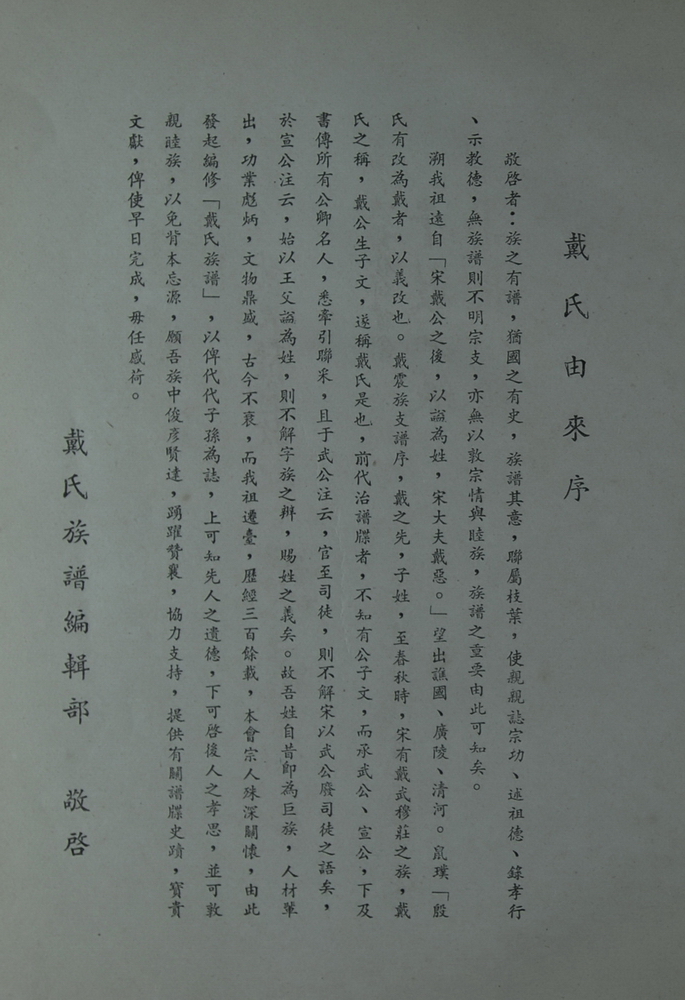 戴氏由來序
敬啓者：族之有譜，猶國之有史，族譜其意，聯屬枝葉，使親親誌宗功、述祖德、錄孝行
、示教德，無族譜則不明宗支，亦無以敦宗情與睦族，族譜之重要由此可知矣。
溯我祖遠自「宋戴公之後，以謚為姓，宋大夫戴惡。」望出譙國、廣陵、清河。鼠璞「殷
氏有改為戴者，以義改也。戴震族支譜序，戴之先，子姓，至春秋時，宋有戴武穆莊之族，戴
氏之稱，戴公生子文，遂稱戴氏是也，前代治譜牒者，不知有公子文，而承武公、宣公，下及
書傳所有公卿名人，悉牽引聯采，且于武公注云，官至司徒，則不解宋以武公廢司徒之語矣，
於宣公注云，始以王父謚為姓，則不解字族之辯，賜姓之義矣。故吾姓自昔即為巨族，人材輩
出，功業彪炳，文物鼎盛，古今不衰，而我祖遷臺，歷經三百餘載，本會宗人殊深關懷，由此
發起編修「戴氏族譜」，以俾代代子孫為誌，上可知先人之遺德，下可啓後人之孝思，並可敦
親睦族，以免背本忘源，願吾族中俊彥賢達，踴躍贊襄，協力支持，提供有關譜牒史蹟，寶貴
文獻，俾使早日完成，毋任感荷。
戴氏族譜編輯部　敬啓